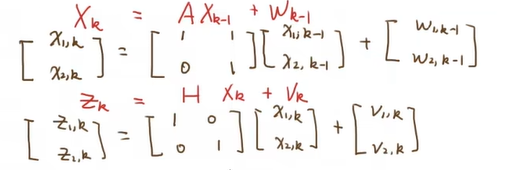 X_k = A X_{k-1} + W_{k-1}
[x_{1,k} x_{2,k}] = [1 1 0 1] [x_{1,k-1} x_{2,k-1}] + [w_{1,k-1} w_{2,k-1}]
Z_k = H X_k + V_k
[z_{1,k} z_{2,k}] = [1 0 0 1] [x_{1,k} x_{2,k}] + [v_{1,k} v_{2,k}]